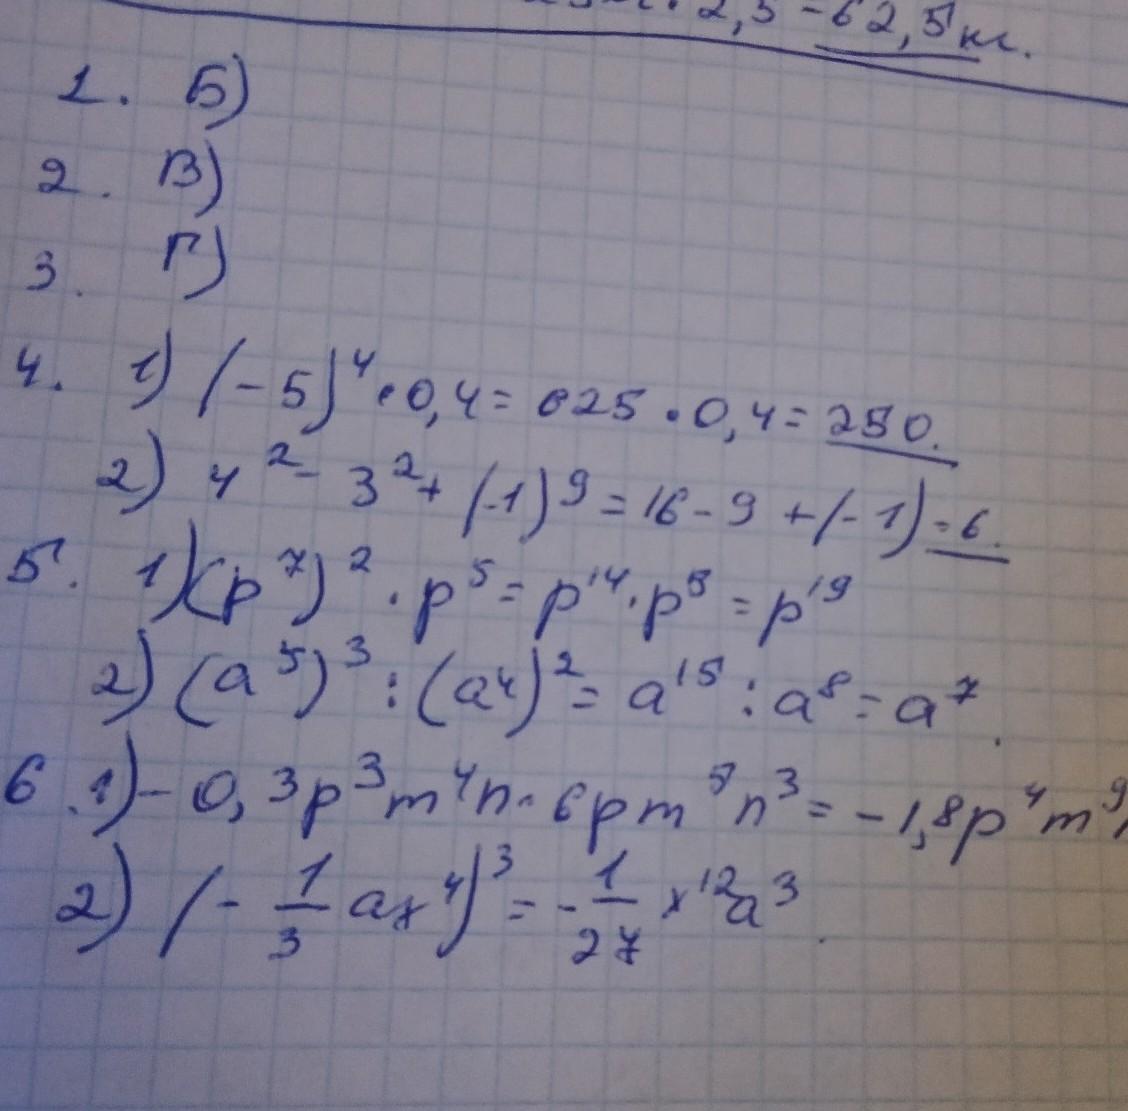 2,5 = 62,5 кг.
1. Б)
2. В)
3. Г)
4. 1) (-5)⁴ · 0,4 = 625 · 0,4 = 250.
2) 4² - 3² + (-1)⁹ = 16 - 9 + (-1) = 6.
5. 1) (p⁷)² · p⁵ = p¹⁴ · p⁵ = p¹⁹
2) (a⁵)³ : (a⁴)² = a¹⁵ : a⁸ = a⁷.
6. 1) - 0,3p³m⁴n · 6pm⁵n³ = -1,8p⁴m⁹
2) (- 1/3 ax⁴)³ = - 1/27 x¹²a³.